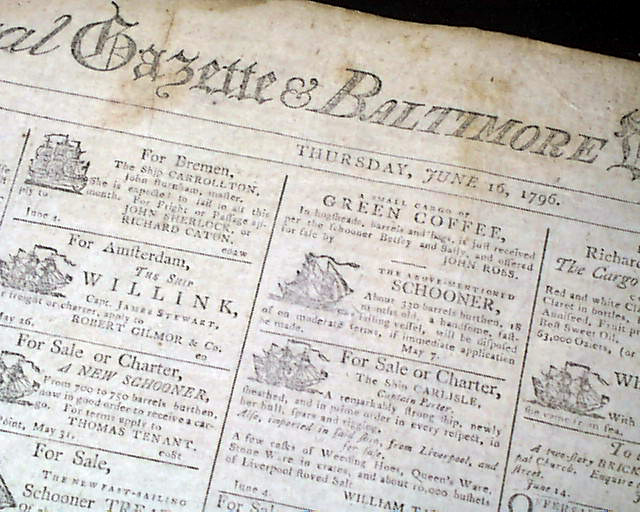 al Gazette & BALTIMORE
THURSDAY, JUNE 16, 1796.
For Bremen,
The Ship CARROLLTON,
John Burnham, master.
She is expected to sail in this
month. For Fright or Passage ap-
ply to
JOHN SHERLOCK, or
RICHARD CATON.
June 4. eo2w
For Amsterdam,
The Ship
WILLINK,
Capt. James Stewart,
freight or charter, apply to
ROBERT GILMOR & Co.
May 26. eo
For Sale or Charter,
A NEW SCHOONER,
From 700 to 750 barrels burthen,
now in good order to receive a car-
go. For terms apply to
THOMAS TENANT.
Point, May 31. eo8t
For Sale,
THE NEW FAST-SAILING
Schooner
A SMALL CARGO OF
GREEN COFFEE,
In hogsheads, barrels and bags, is just received
per the schooner Betsey and Sally, and offered
for sale by
JOHN ROSS.
THE ABOVE-MENTIONED
SCHOONER,
About 330 barrels burthen, 18
months old, a handsome, fast-
sailing vessel, will be disposed
of on moderate terms, if immediate application
be made.
May 7.
For Sale or Charter,
The Ship CARLISLE,
Captain Porter.
A remarkably strong ship, newly
sheathed, and in prime order in every respect, in
her hull, spars and rigging.
Also, imported in said ship, from Liverpool, and
for sale,
A few casks of Weeding Hoes, Queen's Ware,
Stone Ware in crates, and about 10,000 bushels
of Liverpool stoved Salt.
June 4.
WILLIAM
For Sale
Richard
The Cargo
Red and white
Claret in bottles,
Anniseed, Fruit
Best Sweet Oil,
63,000 Osiers, (or
With
the same in sea.
To
A two-story BRICK
pal Church. Enquire
street.
June 14.